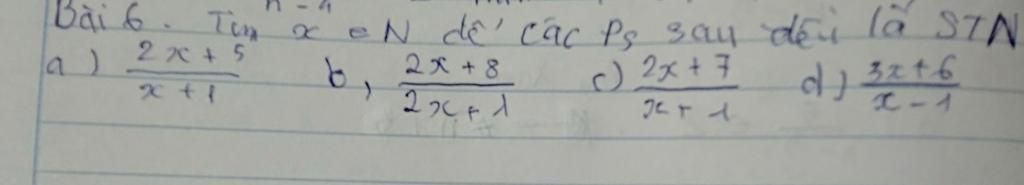 n-1
Bài 6. Tìm x ∈ N để các Ps sau đều là STN
a) \frac{2x+5}{x+1} b, \frac{2x+8}{2x+1} c) \frac{2x+7}{x+1} d) \frac{3x+6}{x-1}